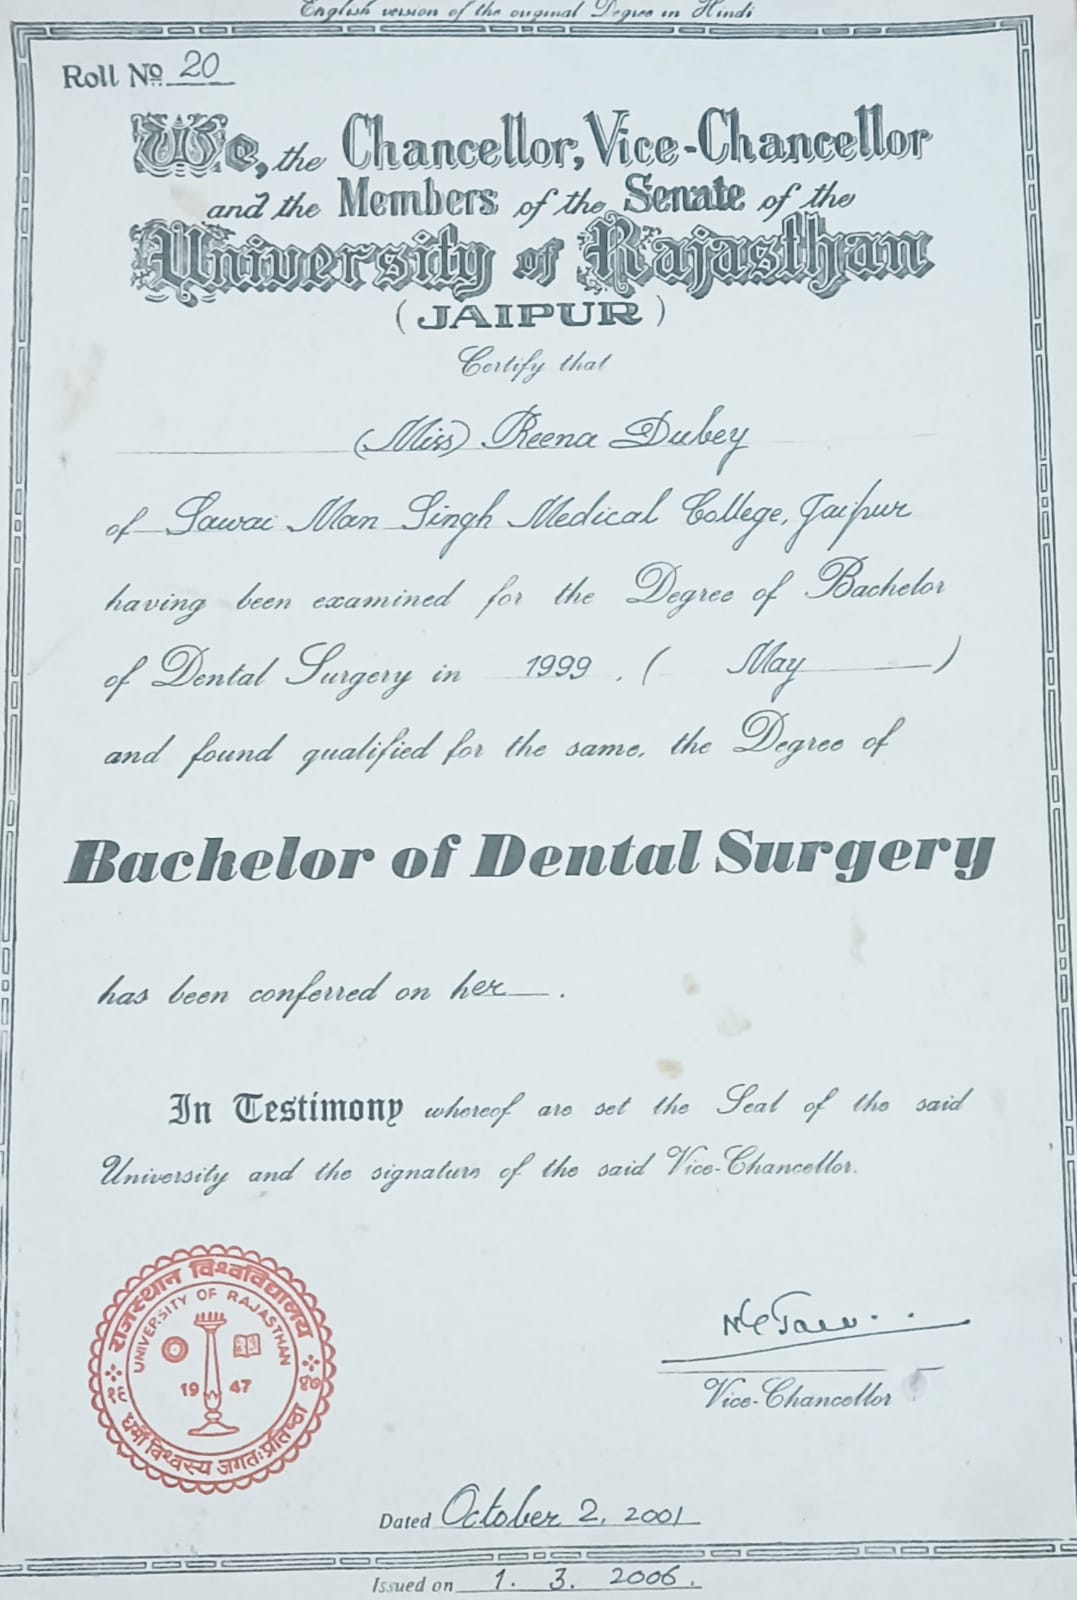 English version of the original Degree in Hindi
Roll No. 20
We, the Chancellor, Vice-Chancellor
and the Members of the Senate of the
University of Rajasthan
(JAIPUR)
Certify that
(Miss) Reena Dubey
of Sawai Man Singh Medical College, Jaipur
having been examined for the Degree of Bachelor
of Dental Surgery in 1999. ( May )
and found qualified for the same, the Degree of
Bachelor of Dental Surgery
has been conferred on her.
In Testimony whereof are set the Seal of the said
University and the signature of the said Vice-Chancellor.
राजस्थान विश्वविद्यालय
UNIVERSITY OF RAJASTHAN
1947
१९ ४७
धर्मो विश्वस्य जगतः प्रतिष्ठा
Vice-Chancellor
Dated October 2, 2001
Issued on 1. 3. 2006.